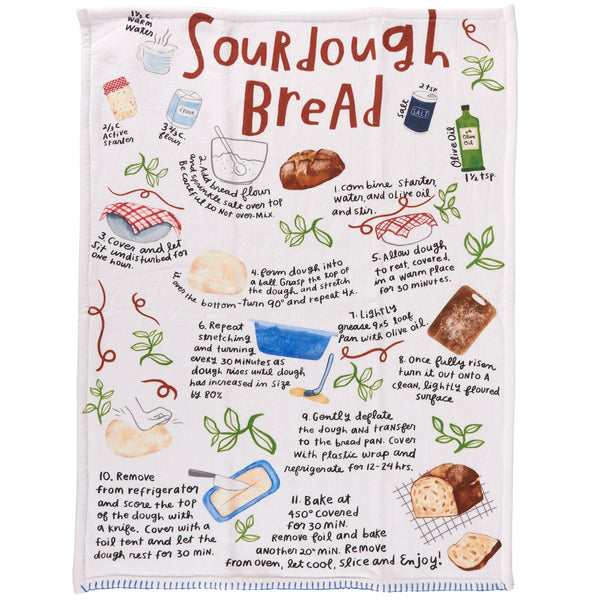 Sourdough
Bread
1½ C.
Warm
Water
2/3 C
Active
Starter
3 2/3 C.
flour
FLOUR
2 tsp
Salt
SALT
Olive Oil
Olive
Oil
1½ tsp.
1. Combine Starter,
water, and olive oil
and stir.
2. Add bread flour
and sprinkle salt over top
Be careful to Not over-Mix.
3. Cover and let
Sit undisturbed for
one hour.
4. form dough into
a ball. Grasp the top of
the dough, and stretch
it over the bottom-turn 90° and repeat 4x.
5. Allow dough
to rest, covered,
in a warm place
for 30 minutes.
6. Repeat
stretching
and turning
every 30 Minutes as
dough rises until dough
has increased in Size
by 80%
7. Lightly
grease 9x5 loaf
Pan with olive oil.
8. Once fully risen
turn it out onto A
clean, lightly floured
surface
9. Gently deflate
the dough and transfer
to the bread pan. Cover
with plastic wrap and
refrigerate for 12-24 hrs.
10. Remove
from refrigerator
and score the top
of the dough with
a knife. Cover with a
foil tent and let the
dough rest for 30 min.
11. Bake at
450° covered
for 30 min.
Remove foil and bake
another 20° min. Remove
from oven, let cool, slice and Enjoy!